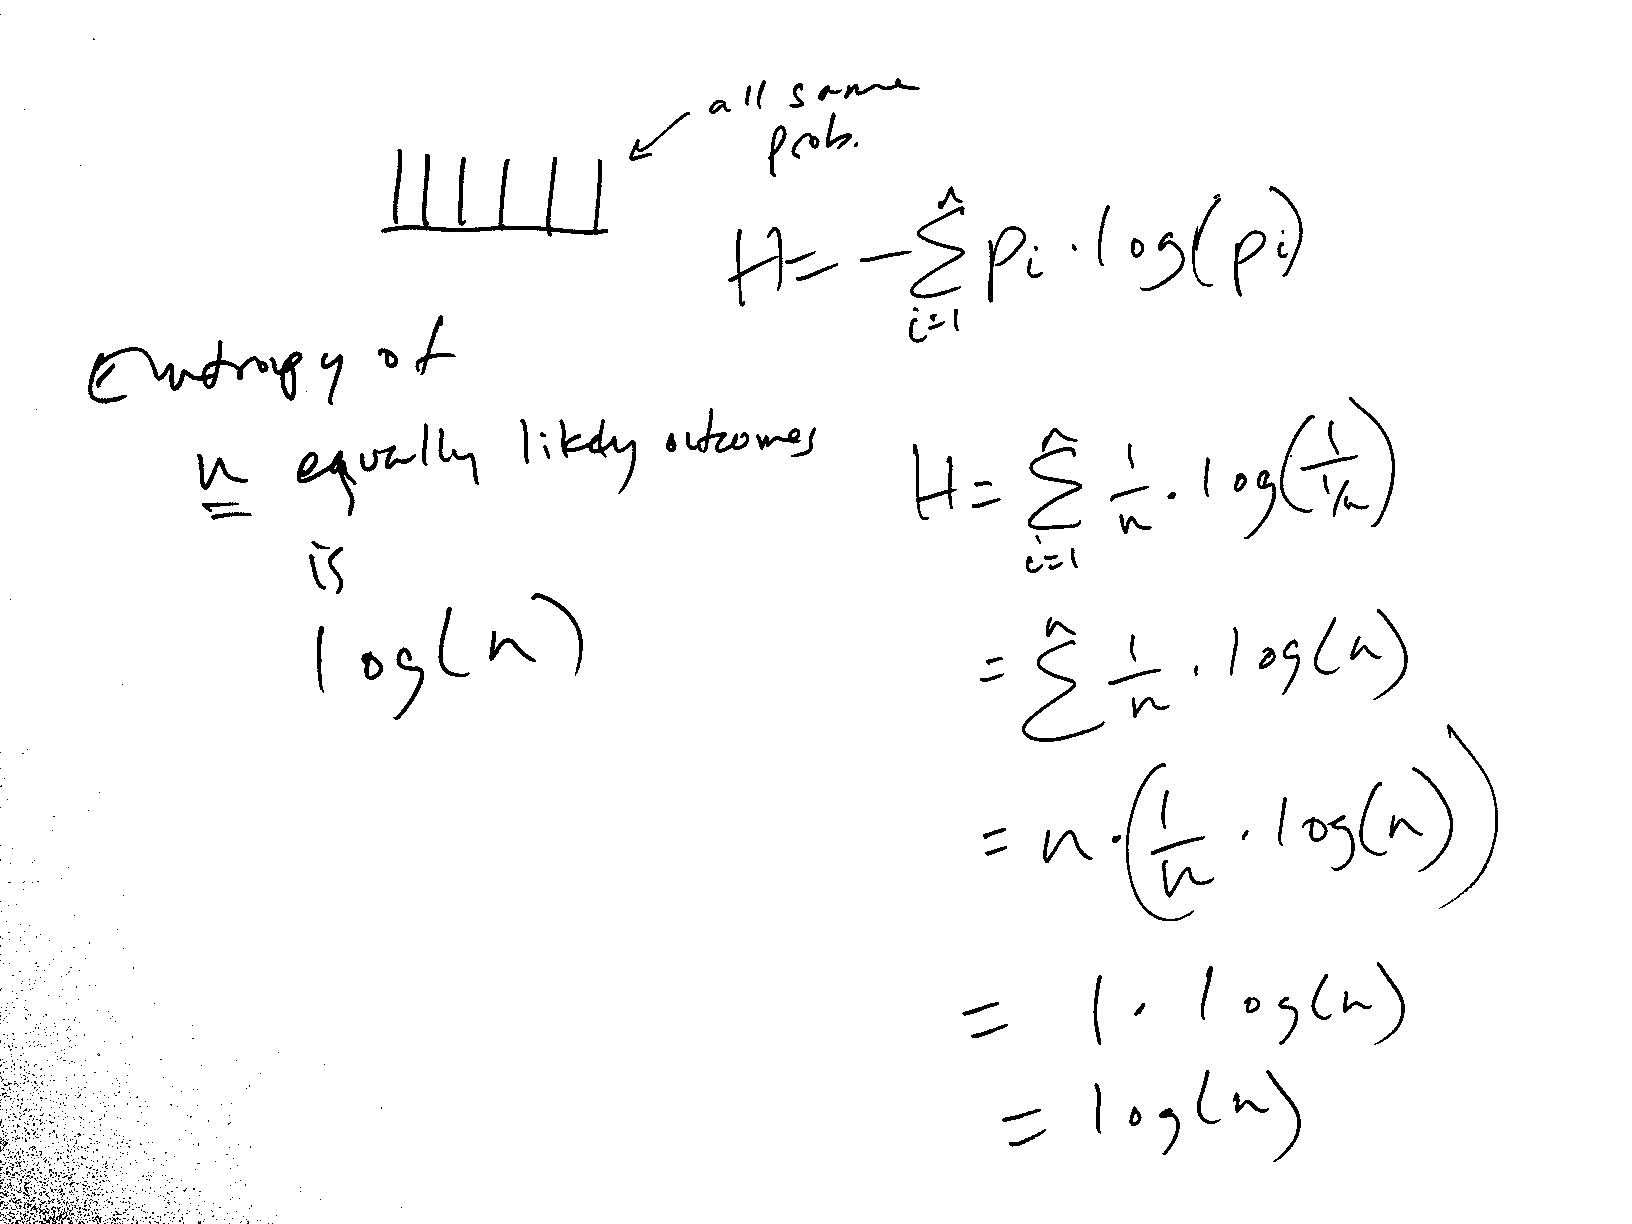 all same
prob.
H = -∑_{i=1}^{n} p_i · log(p_i)
Entropy of
n equally likely outcomes
is
log(n)
H = ∑_{i=1}^{n} 1/n · log(1/(1/n))
= ∑^{n} 1/n · log(n)
= n · (1/n · log(n))
= 1 · log(n)
= log(n)